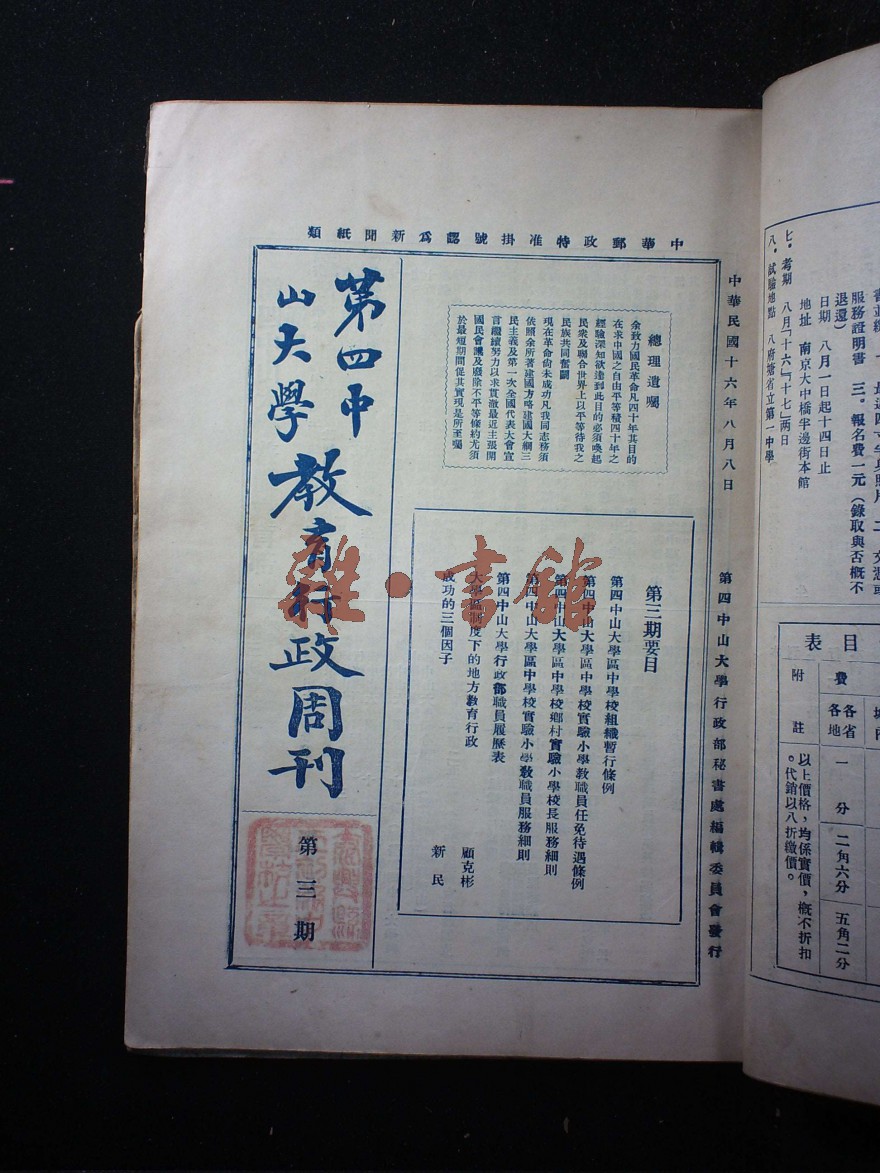 中華郵政特准掛號認為新聞紙類
中華民國十六年八月八日
第四中山大學行政部秘書處編輯委員會發行
總理遺囑
余致力國民革命凡四十年其目的
在求中國之自由平等積四十年之
經驗深知欲達到此目的必須喚起
民衆及聯合世界上以平等待我之
民族共同奮鬬
現在革命尙未成功凡我同志務須
依照余所著建國方略建國大綱三
民主義及第一次全國代表大會宣
言繼續努力以求貫澈最近主張開
國民會議及廢除不平等條約尤須
於最短期間促其實現是所至囑
第三期要目
第四中山大學區中學校組織暫行條例
第四中山大學區中學校實驗小學教職員任免待遇條例
第四中山大學區中學校鄉村實驗小學校長服務細則
第四中山大學區中學校實驗小學教職員服務細則
第四中山大學行政部職員履歷表
大學區制度下的地方教育行政 顧克彬
成功的三個因子 新民
第四中
山大學
教育行政周刊
第三期
雜·書館
服務證明書 三．報名費一元（錄取與否概不
退還）
日期 八月一日起十四日止
地址 南京大中橋半邊街本館
七．考期 八月「十六」「十七」兩日
八．試驗地點 八府塘省立第一中學
目表
費
各省各地
一分
二角六分
五角二分
附註
以上價格，均係實價，概不折扣
。代銷以八折繳價。